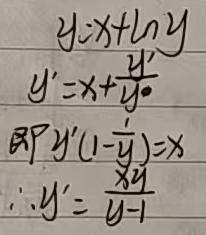 y=x+ln y
y'=x+y'/y
即 y'(1-1/y)=x
∴y'=xy/(y-1)